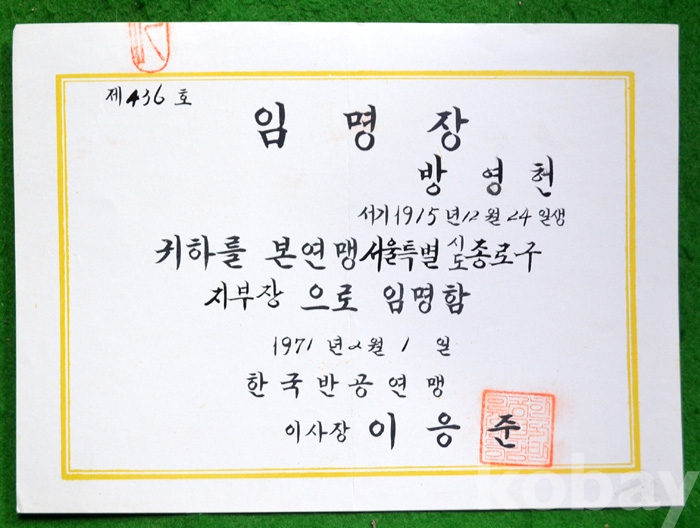 제436호
임명장
방영헌
서기1915년12월24일생
귀하를 본연맹서울특별시도종로구
지부장 으로 임명함
1971년 2월 1일
한국반공연맹
이사장 이응준
kobay